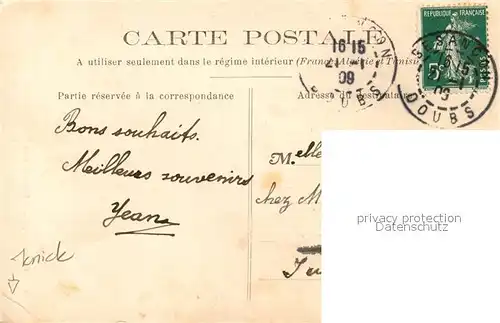 CARTE POSTALE
A utiliser seulement dans le régime intérieur (France, Algérie et Tunisie)
Partie réservée à la correspondance
Adresse du destinataire
16 15
21 - 1
09
DOUBS
REPUBLIQUE FRANÇAISE
5c
POSTES
BESANÇON
16 15
09
DOUBS
Bons souhaits.
Meilleurs souvenirs
Jean
Melle
chez M
knick
privacy protection
Datenschutz